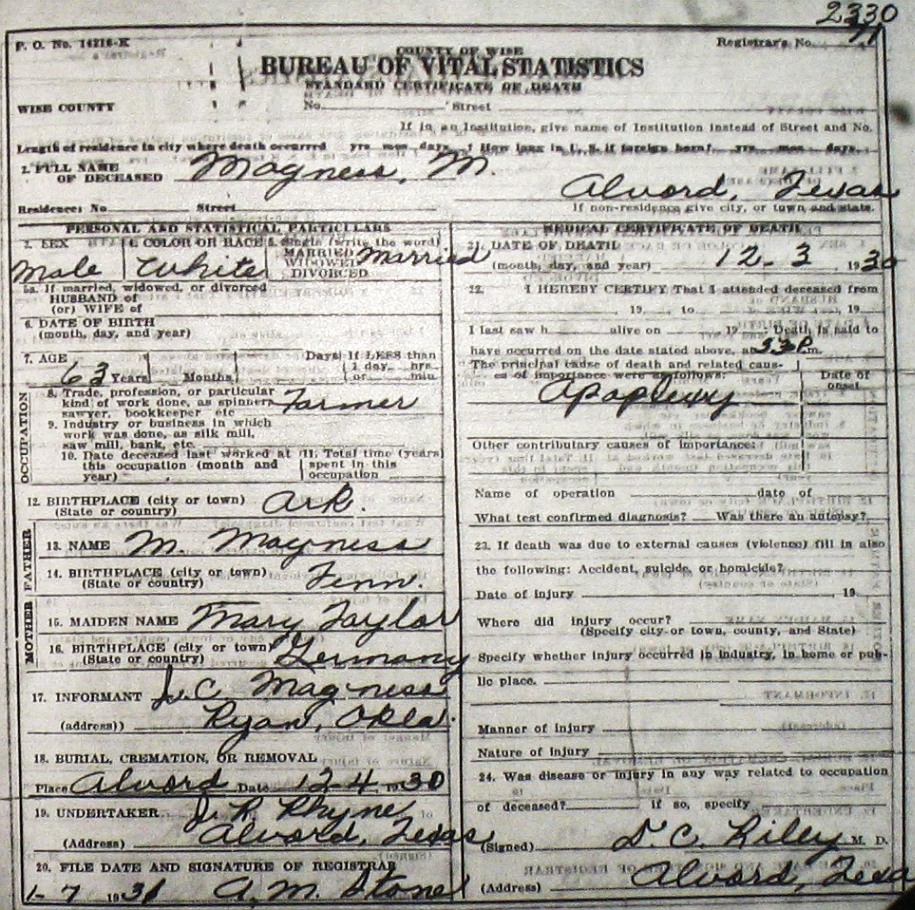 2330
F. O. No. 14216-K
Registrar's No. 71
COUNTY OF WISE
BUREAU OF VITAL STATISTICS
STANDARD CERTIFICATE OF DEATH
WISE COUNTY No. Street
If in an Institution, give name of Institution instead of Street and No.
Length of residence in city where death occurred yrs mos days. How long in U. S. if foreign born? yrs. mos. days.
2. FULL NAME OF DECEASED Magness, M.
Alvord, Texas
Residence: No. Street If non-residence give city, or town and state.
PERSONAL AND STATISTICAL PARTICULARS
3. SEX Male
4. COLOR OR RACE White
5. Single (write the word) MARRIED WIDOWED DIVORCED Married
5a. If married, widowed, or divorced
HUSBAND of
(or) WIFE of
6. DATE OF BIRTH
(month, day, and year)
7. AGE 63 Years Months Days If LESS than 1 day hrs or min
OCCUPATION
8. Trade, profession, or particular
kind of work done, as spinner,
sawyer, bookkeeper etc Farmer
9. Industry or business in which
work was done, as silk mill,
saw mill, bank, etc.
10. Date deceased last worked at
this occupation (month and
year)
11. Total time (years
spent in this
occupation
12. BIRTHPLACE (city or town)
(State or country) Ark.
FATHER
13. NAME M. Magness
14. BIRTHPLACE (city or town)
(State or country) Tenn.
MOTHER
15. MAIDEN NAME Mary Taylor
16. BIRTHPLACE (city or town)
(State or country) Germany
17. INFORMANT J. C. Magness
(address)) Ryan, Okla.
18. BURIAL, CREMATION, OR REMOVAL
Place Alvord Date 12-4 1930
19. UNDERTAKER J. R. Rhyne
(Address) Alvord, Texas
20. FILE DATE AND SIGNATURE OF REGISTRAR
1-7 1931 A. M. Stone
MEDICAL CERTIFICATE OF DEATH
21. DATE OF DEATH
(month, day, and year) 12-3 1930
22. I HEREBY CERTIFY That I attended deceased from
19 to 19
I last saw h alive on 19 Death is said to
have occurred on the date stated above, at m.
The principal cause of death and related cau-
es of importance were as follows: Date of onset
Apoplexy
Other contributory causes of importance:
Name of operation date of
What test confirmed diagnosis? Was there an autopsy?
23. If death was due to external causes (violence) fill in also
the following: Accident, suicide, or homicide?
Date of injury 19
Where did injury occur?
(Specify city or town, county, and State)
Specify whether injury occurred in industry, in home or pub-
lic place.
Manner of injury
Nature of injury
24. Was disease or injury in any way related to occupation
of deceased? if so, specify
(Signed) D. C. Riley M. D.
(Address) Alvord, Texa